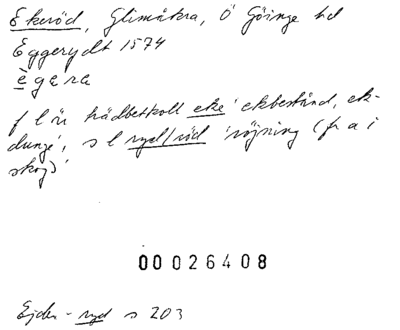 Ekeröd, Glimåkra, Ö Göinge hd
Eggerydt 1574
ègara
f l är trädbetkoll eke 'ekbestånd, ek-
dunge', s l ryd/röd 'röjning (fr a i
skog)'
00026408
Ejder-ryd s 203